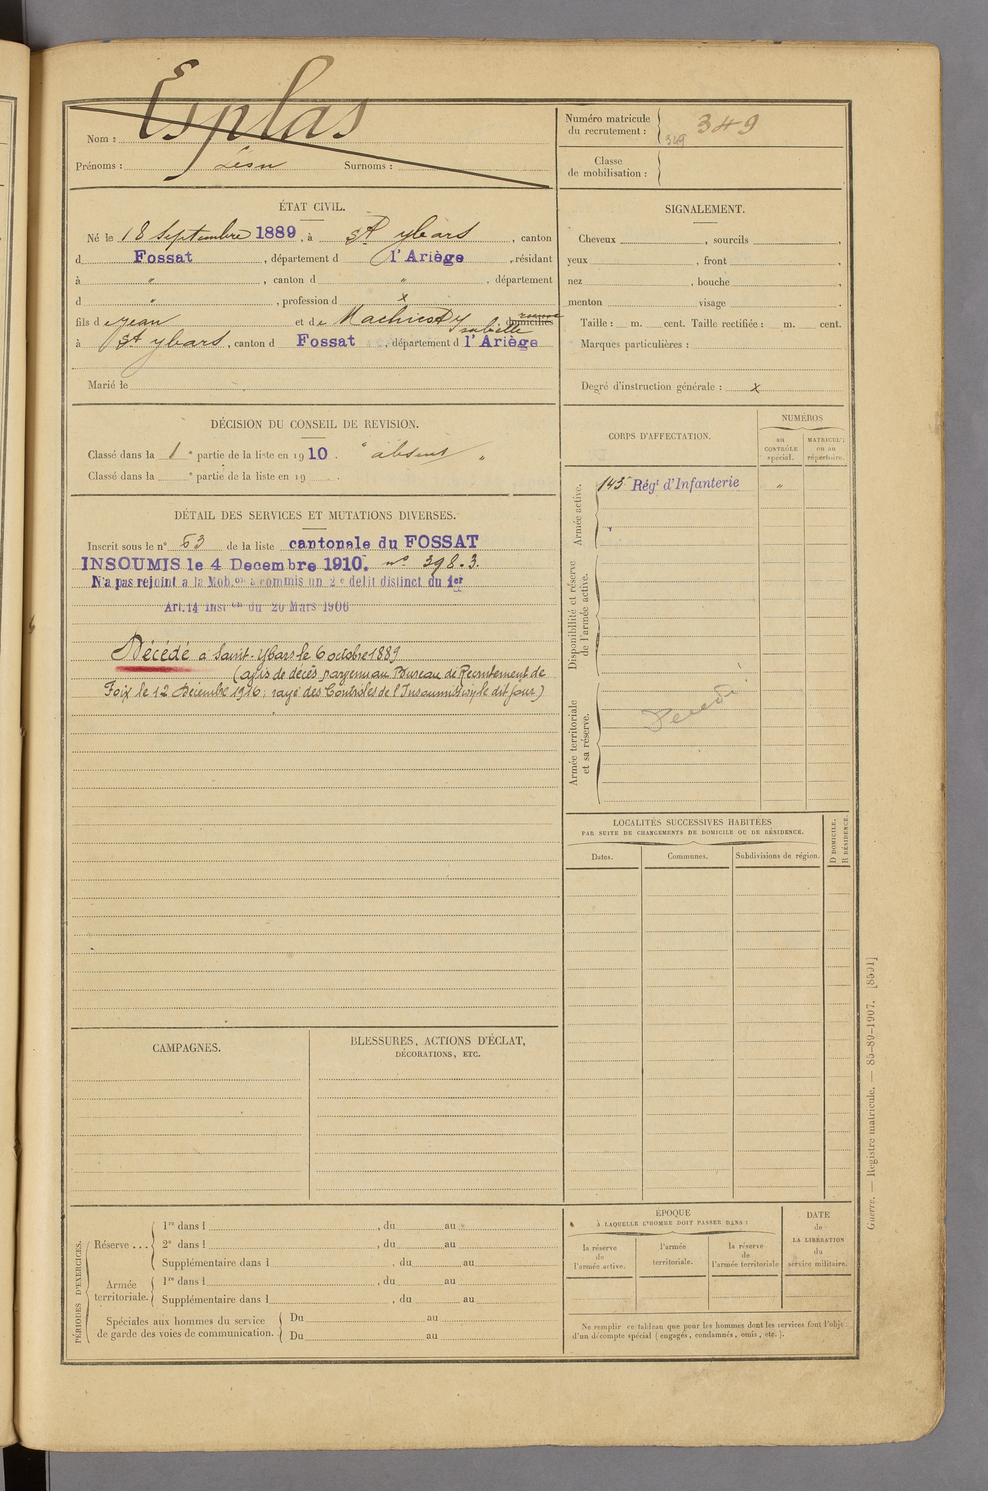 Nom : Esplas
Prénoms : Léon Surnoms :
Numéro matricule du recrutement : 349 349
Classe de mobilisation :
ÉTAT CIVIL.
Né le 18 Septembre 1889, à St Ybars, canton
d Fossat, département d l'Ariège, résidant
à " , canton d " , département
d " , profession d x
fils de Jean et de domiciliés
à St Ybars, canton d Fossat, département d l'Ariège
Marié le
SIGNALEMENT.
Cheveux , sourcils ,
yeux , front ,
nez , bouche ,
menton visage .
Taille : m. cent. Taille rectifiée : m. cent.
Marques particulières :
Degré d'instruction générale : x
DÉCISION DU CONSEIL DE REVISION.
Classé dans la 1 e partie de la liste en 1910. " absent "
Classé dans la e partie de la liste en 19 .
DÉTAIL DES SERVICES ET MUTATIONS DIVERSES.
Inscrit sous le n° 53 de la liste cantonale du FOSSAT
INSOUMIS le 4 Decembre 1910. n° 398.3.
N'a pas rejoint a la Mob.on a commis un 2e delit distinct du 1er
Art.14 Inston du 20 Mars 1906
Décédé à Saint-Ybars le 6 octobre 1889
(avis de décès parvenu au Bureau de Recrutement de
Foix le 12 Décembre 1916; rayé des Contrôles de l'Insoumission le dit jour)
CORPS D'AFFECTATION.
NUMÉROS
au CONTRÔLE spécial.
MATRICULE ou au répertoire.
Armée active.
143e Régt d'Infanterie "
Disponibilité et réserve de l'armée active.
Armée territoriale et sa réserve.
LOCALITÉS SUCCESSIVES HABITÉES
PAR SUITE DE CHANGEMENTS DE DOMICILE OU DE RÉSIDENCE.
Dates. Communes. Subdivisions de région. D DOMICILE. R RÉSIDENCE.
CAMPAGNES.
BLESSURES, ACTIONS D'ÉCLAT,
DÉCORATIONS, ETC.
PÉRIODES D'EXERCICES.
Réserve ...
1re dans l , du au
2e dans l , du au
Supplémentaire dans l , du au
Armée territoriale.
1re dans l , du au
Supplémentaire dans l , du au
Spéciales aux hommes du service de garde des voies de communication.
Du au
Du au
ÉPOQUE
À LAQUELLE L'HOMME DOIT PASSER DANS :
la réserve de l'armée active.
l'armée territoriale.
la réserve de l'armée territoriale
DATE de LA LIBÉRATION du service militaire.
Ne remplir ce tableau que pour les hommes dont les services font l'objet
d'un décompte spécial (engagés, condamnés, omis, etc.).
Guerre. — Registre matricule. — 85-89-1907. [8591]